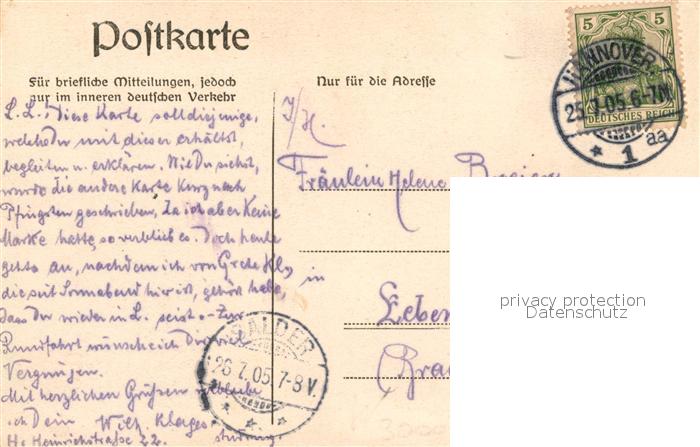 Postkarte
Für briefliche Mitteilungen, jedoch
nur im inneren deutschen Verkehr
Nur für die Adresse
5 5
DEUTSCHES REICH
HANNOVER
25.7.05.6-7N.
* 1 aa
L. L.! Diese Karte soll diejenige,
welche Du mit dieser erhältst,
begleiten u. erklären. Wie Du siehst,
wurde die andere Karte kurz nach
Pfingsten geschrieben, da ich aber keine
Marke hatte, so verblieb es. Doch heute
gehts an, nachdem ich von Grete Kl.,
die seit Sonnabend hier ist, gehört habe,
dass Du wieder in L. seist. Zur
Rundfahrt wünsche ich Dir viel
Vergnügen.
Mit herzlichen Grüßen verbleibe
ich Dein Wilh. Klages
H. Heinrichstraße 22.
Fräulein Helene
in
Leben
(Bra
SALDER
26.7.05.7-8V.
privacy protection
Datenschutz